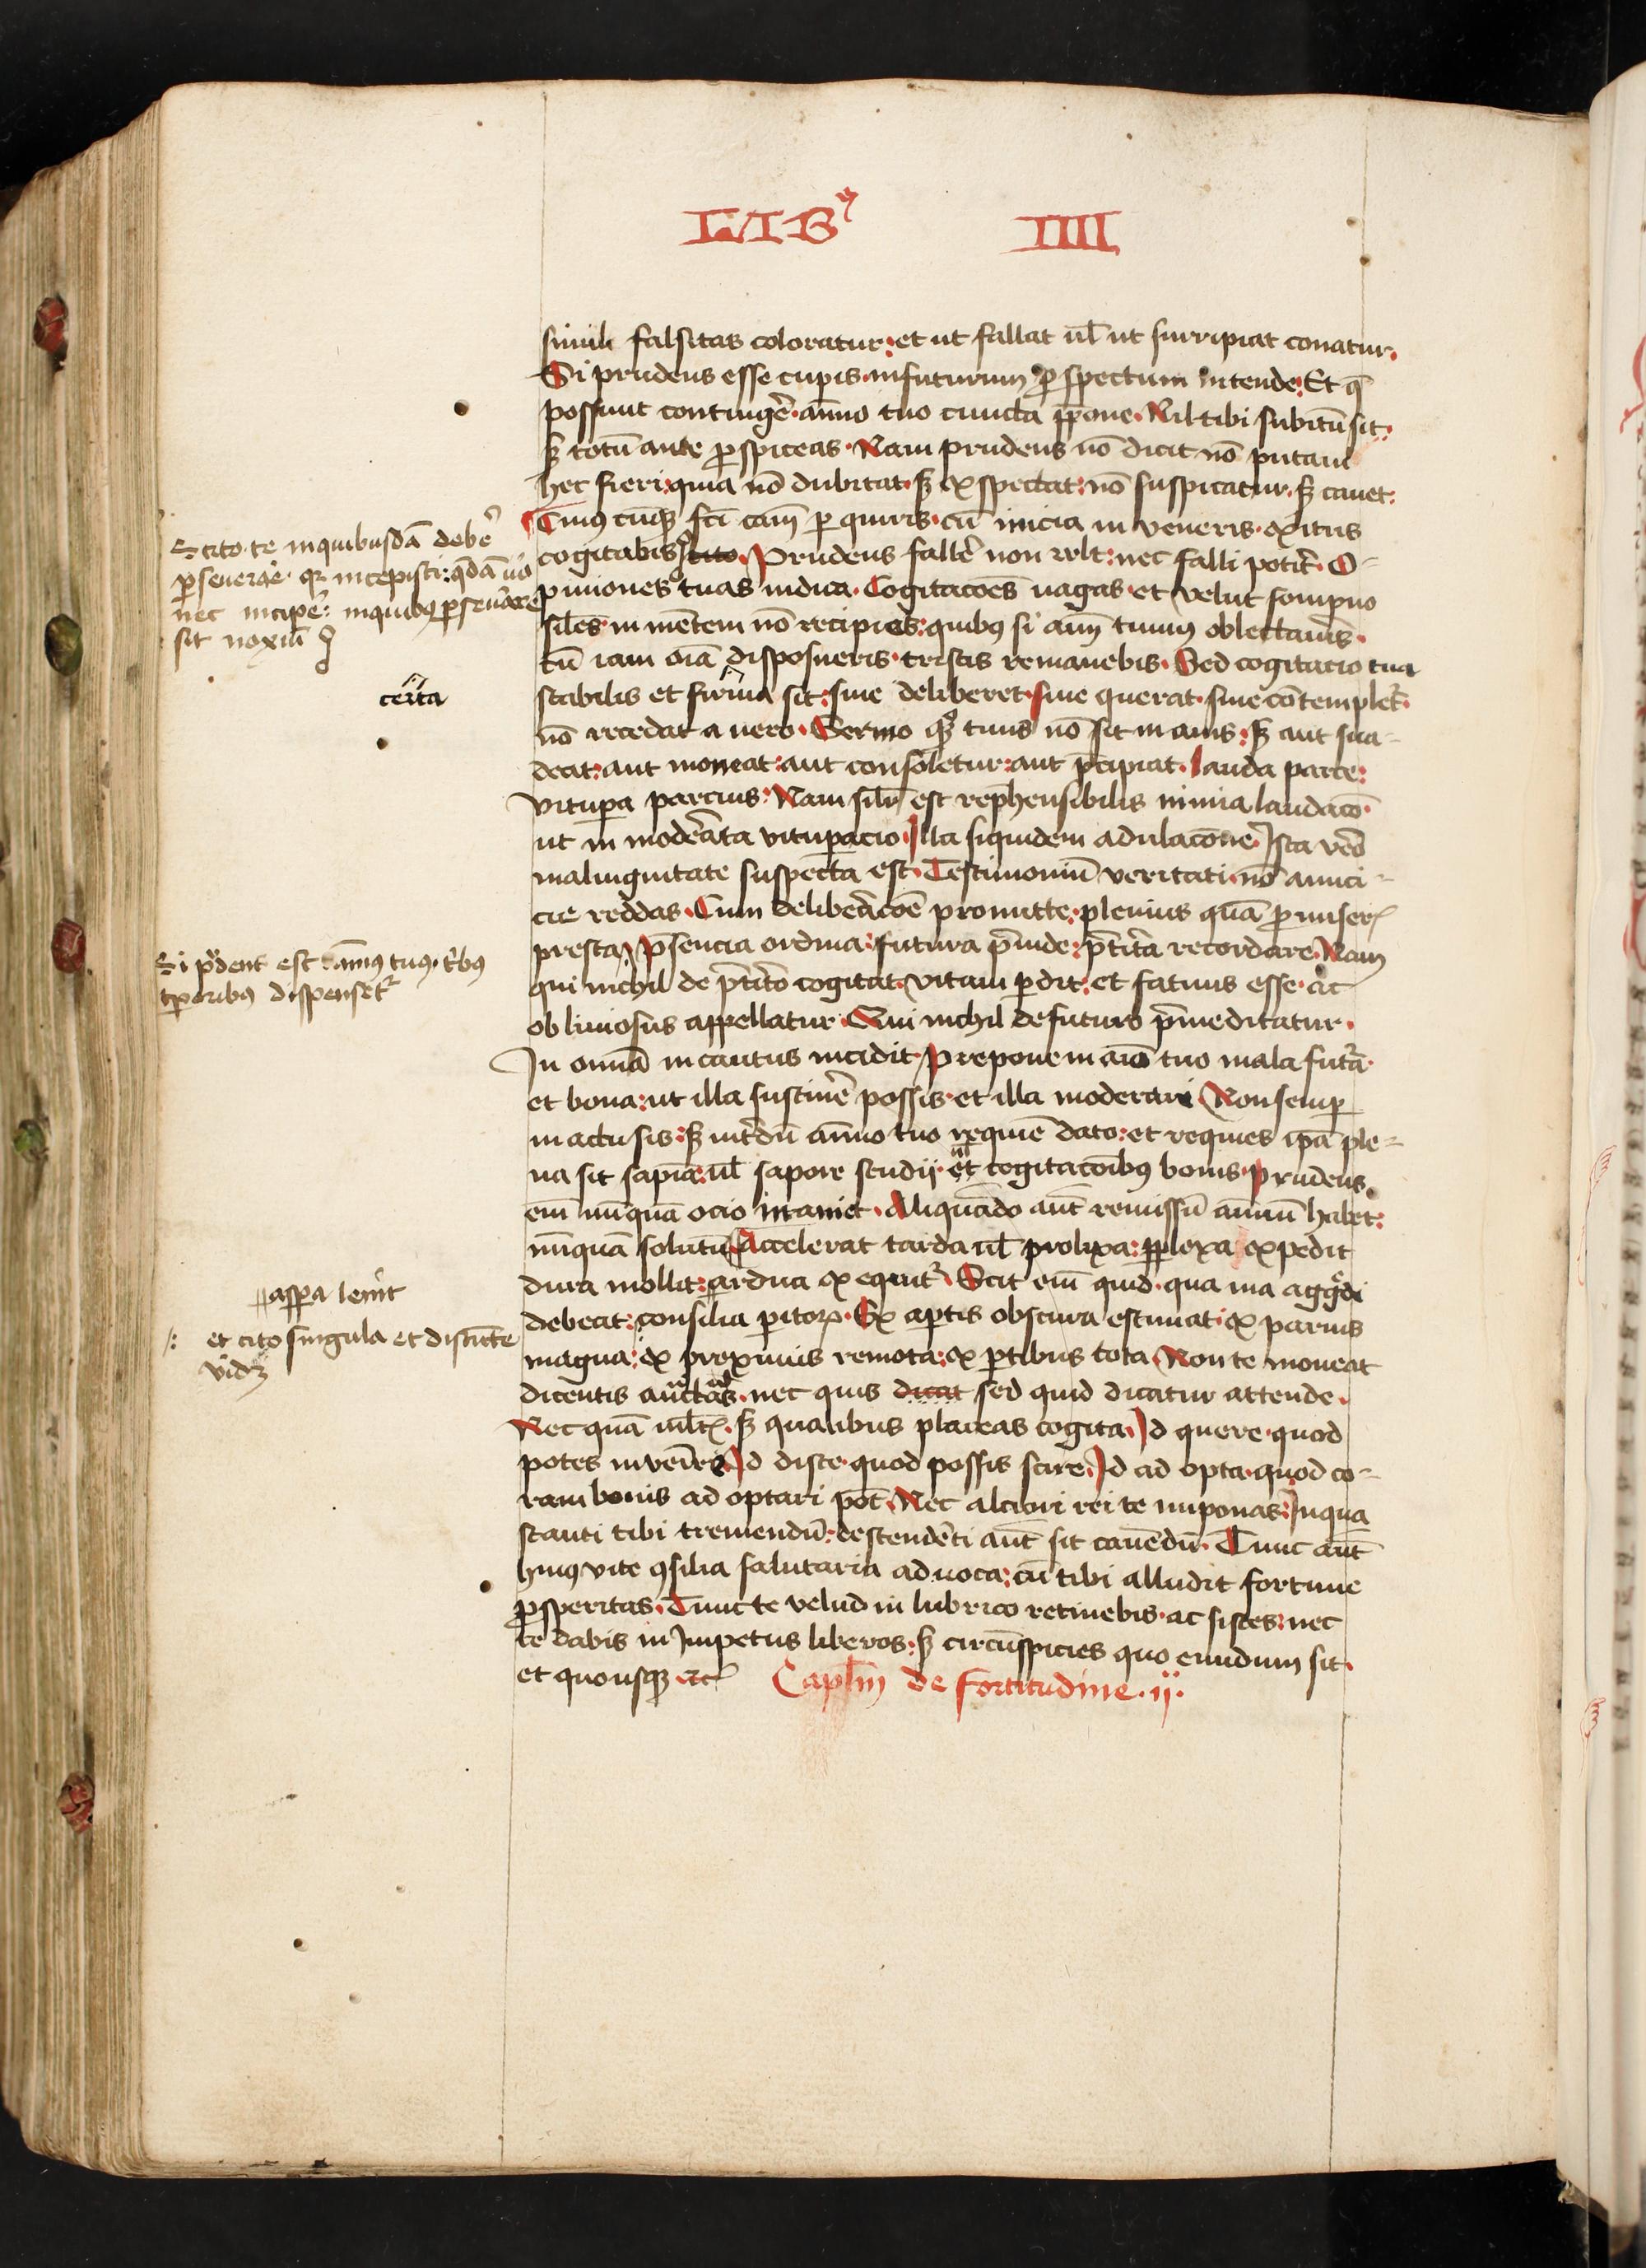 LIBꝰ IIII
simili falsitas coloratur: et ut fallat ul̄ ut surripiat conatur.
Si prudens esse cupis. in futurum ꝓspectum intende. Et q̄
possunt contingē͛. aīmo tuo cuncta ꝓpone. Nil tibi subitū sit:
sꝫ totū ante ꝑspiceas. Nam prudens nō dicit nō putaui
hec fieri: quia nō dubitat. sꝫ exspectat: nō suspicatur. sꝫ cauet:
Cuiꝰ cūqꝫ fc̄i cām ꝑ quiris. cū inicia in veneris. exitus
cogitabis scito. Prudens fallē͛ non vlt: nec falli potit͛. O-
piniones tuas iudica. Cogitacōes uagas. et velut sompno
siles. in mētem nō recipies: quibꝰ si aīm tuum oblectaueis͛.
tū iam oīa disposueris. tristis remanebis. Sed cogitacio tua
stabilis et firma sit: siue deliberet. siue querat. siue cōtemplet͛.
nō recedat a uero. Sermo qꝫ tuus nō sit in anis: sꝫ aut sua-
deat: aut moneat: aut consoletur: aut p̄cipiat. lauda parce:
vituꝑa parcius: Nam silr̄ est rep̄hensibilis nimia laudacō.
ut in modēata vituꝑacio. Illa siquidem adulacōne. Ista vēo
malingnitate suspecta est. Testimoniū veritati. nō amici-
cie reddas. Cum delibēacōe promitte. plenius quā ꝓmiser͛
presta. P̄sencia ordina: futura p̄uide: p̄tit͛a recordare. Nam
qui nichil de p̄tit͛o cogitat. vitam ꝑdit: et fatuus esse. ac
obliuiosus appellatur. Qui nichil de futuro p̄meditatur.
In omīa incautus incidit. Prepone in aīo tuo mala fut͛a.
et bona: ut illa sustinē͛ possis. et illa moderari. Non semꝑ
in actu sis: sꝫ int͛dū aīmo tuo requiē dato: et requies ip̄a ple-
na sit sapiē. ul̄ sapore studij. et cogitacōibꝰ bonis. Prudens
eīm nūquā ocio in aniet. Aliquādo aūt remissū animū habet:
nūquā solutū. Accelerat tarda ul̄ prolixa: ꝑplexa expedit
dura mollit: ardua exequit͛. Scit eīm quid. qua uia aggͦdi
debeat: consilia ꝑitoꝝ. Ex aꝑtis obscura estimat: ex paruis
magna: ex proximis remota: ex ꝑtibus tota. Non te moueat
dicentis auctās. nec quis dicat sed quid dicatur attende.
Nec quā mltꝭ. sꝫ qualibus placeas cogita. Id quere. quod
potes invenire. Id disce. quod possis scire. Id ad opta. quod co-
ram bonis ad optari pōt. Nec alciori rei te imponas: In qua
stanti tibi tremendū: descendēti aūt sit cauēdū. Tunc aūt
huiꝰ vite ꝯsilia salutaria aduoca: cū tibi alludit fortune
ꝓsperitas. Tunc te velud in lubrico retinebis. ac sistes: nec
te dabis in Impetus liberos: sꝫ circūspicies quo eundum sit.
et quousqꝫ ꝛcꝭ Capl̄m de fortitudine .ij.
Scito te in quibusdā debē͛
ꝑseuerāe. qꝛ incepisti: q̄dā uͦo
nec incipē͛: in quibꝰ ꝑseuāre
sit noxiū
certa
Si pͥdens est aīmꝰ tuꝰ. tͥbꝰ
tꝑoribꝰ dispenset͛
asꝑa lenit
et cito singula et distīcte
vidꝫ